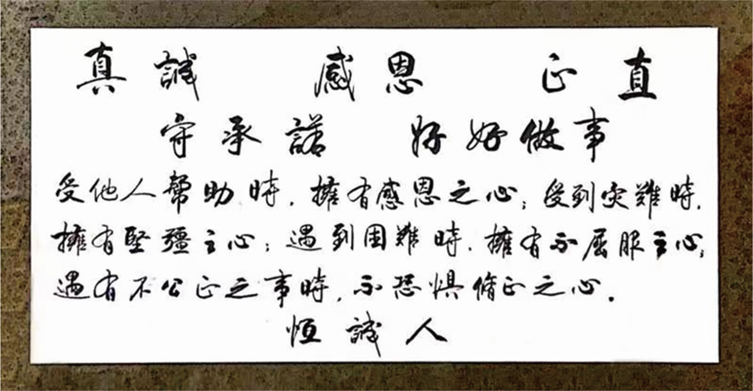 真誠 感恩 正直
守承諾 好好做事
受他人幫助時，擁有感恩之心；受到災難時，
擁有堅疆之心；遇到困難時，擁有不屈服之心；
遇有不公正之事時，不恐惧修正之心。
恆誠人